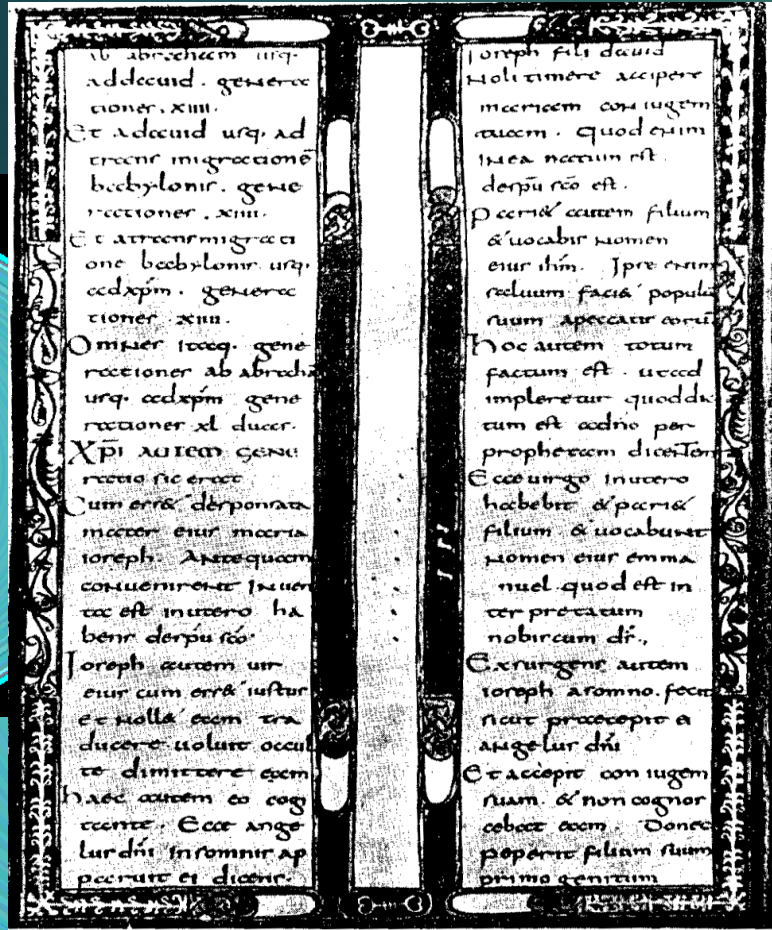 ab abraham usq.
ad dauid. genera
tiones. xiiii.
Et a dauid usq. ad
trans migratione̅
babylonis. gene
rationes. xiiii.
Et a trans migrati
one babylonis usq.
ad xp̅m. genera
tiones xiiii.
Omnes itaq. gene
rationes ab abraha̅
usq. ad xp̅m gene
rationes xl duas.
XP̅I AUTEM GENE
ratio sic erat
Cum ess& desponsata
mater eius maria
ioseph. Antequam
conuenirent inuen
ta est in utero ha
bens de sp̅u sc̅o.
Ioseph autem uir
eius cum ess& iustus
et noll& eam tra
ducere uoluit occul
te dimittere eam
haec autem eo cogi
tante. Ecce ange
lus dn̅i in somnis ap
paruit ei dicens.
Ioseph fili dauid
Noli timere accipere
mariam coniugem
tuam. Quod enim
in ea natum est.
de sp̅u sc̅o est.
Pari& autem filium
& uocabis nomen
eius ih̅m. Ipse enim
saluum faci& populu̅
suum a peccatis eoru̅.
Hoc autem totum
factum est. ut ad
impleretur quod dic
tum est a dn̅o per
prophetam dicentem
Ecce uirgo in utero
habebit & pari&
filium & uocabunt
nomen eius emma
nuel. quod est in
ter pretatum
nobiscum d̅s.,
Exsurgens autem
ioseph a somno. fecit
sicut praecepit ei
angelus dn̅i
Et accepit coniugem
suam. & non cognos
cebat eam. Donec
peperit filium suum
primo genitum
III